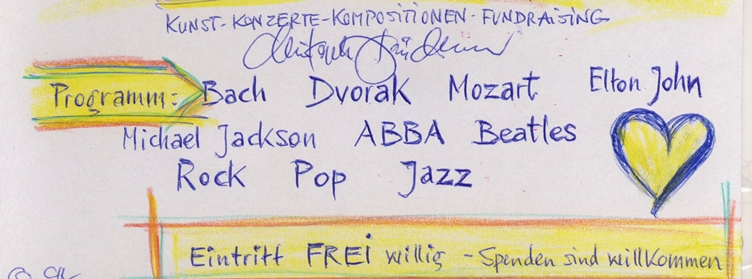 KUNST-KONZERTE-KOMPOSITIONEN-FUNDRAISING
Programm: Bach Dvorak Mozart Elton John
Michael Jackson ABBA Beatles
Rock Pop Jazz
Eintritt FREi willig - Spenden sind willkommen